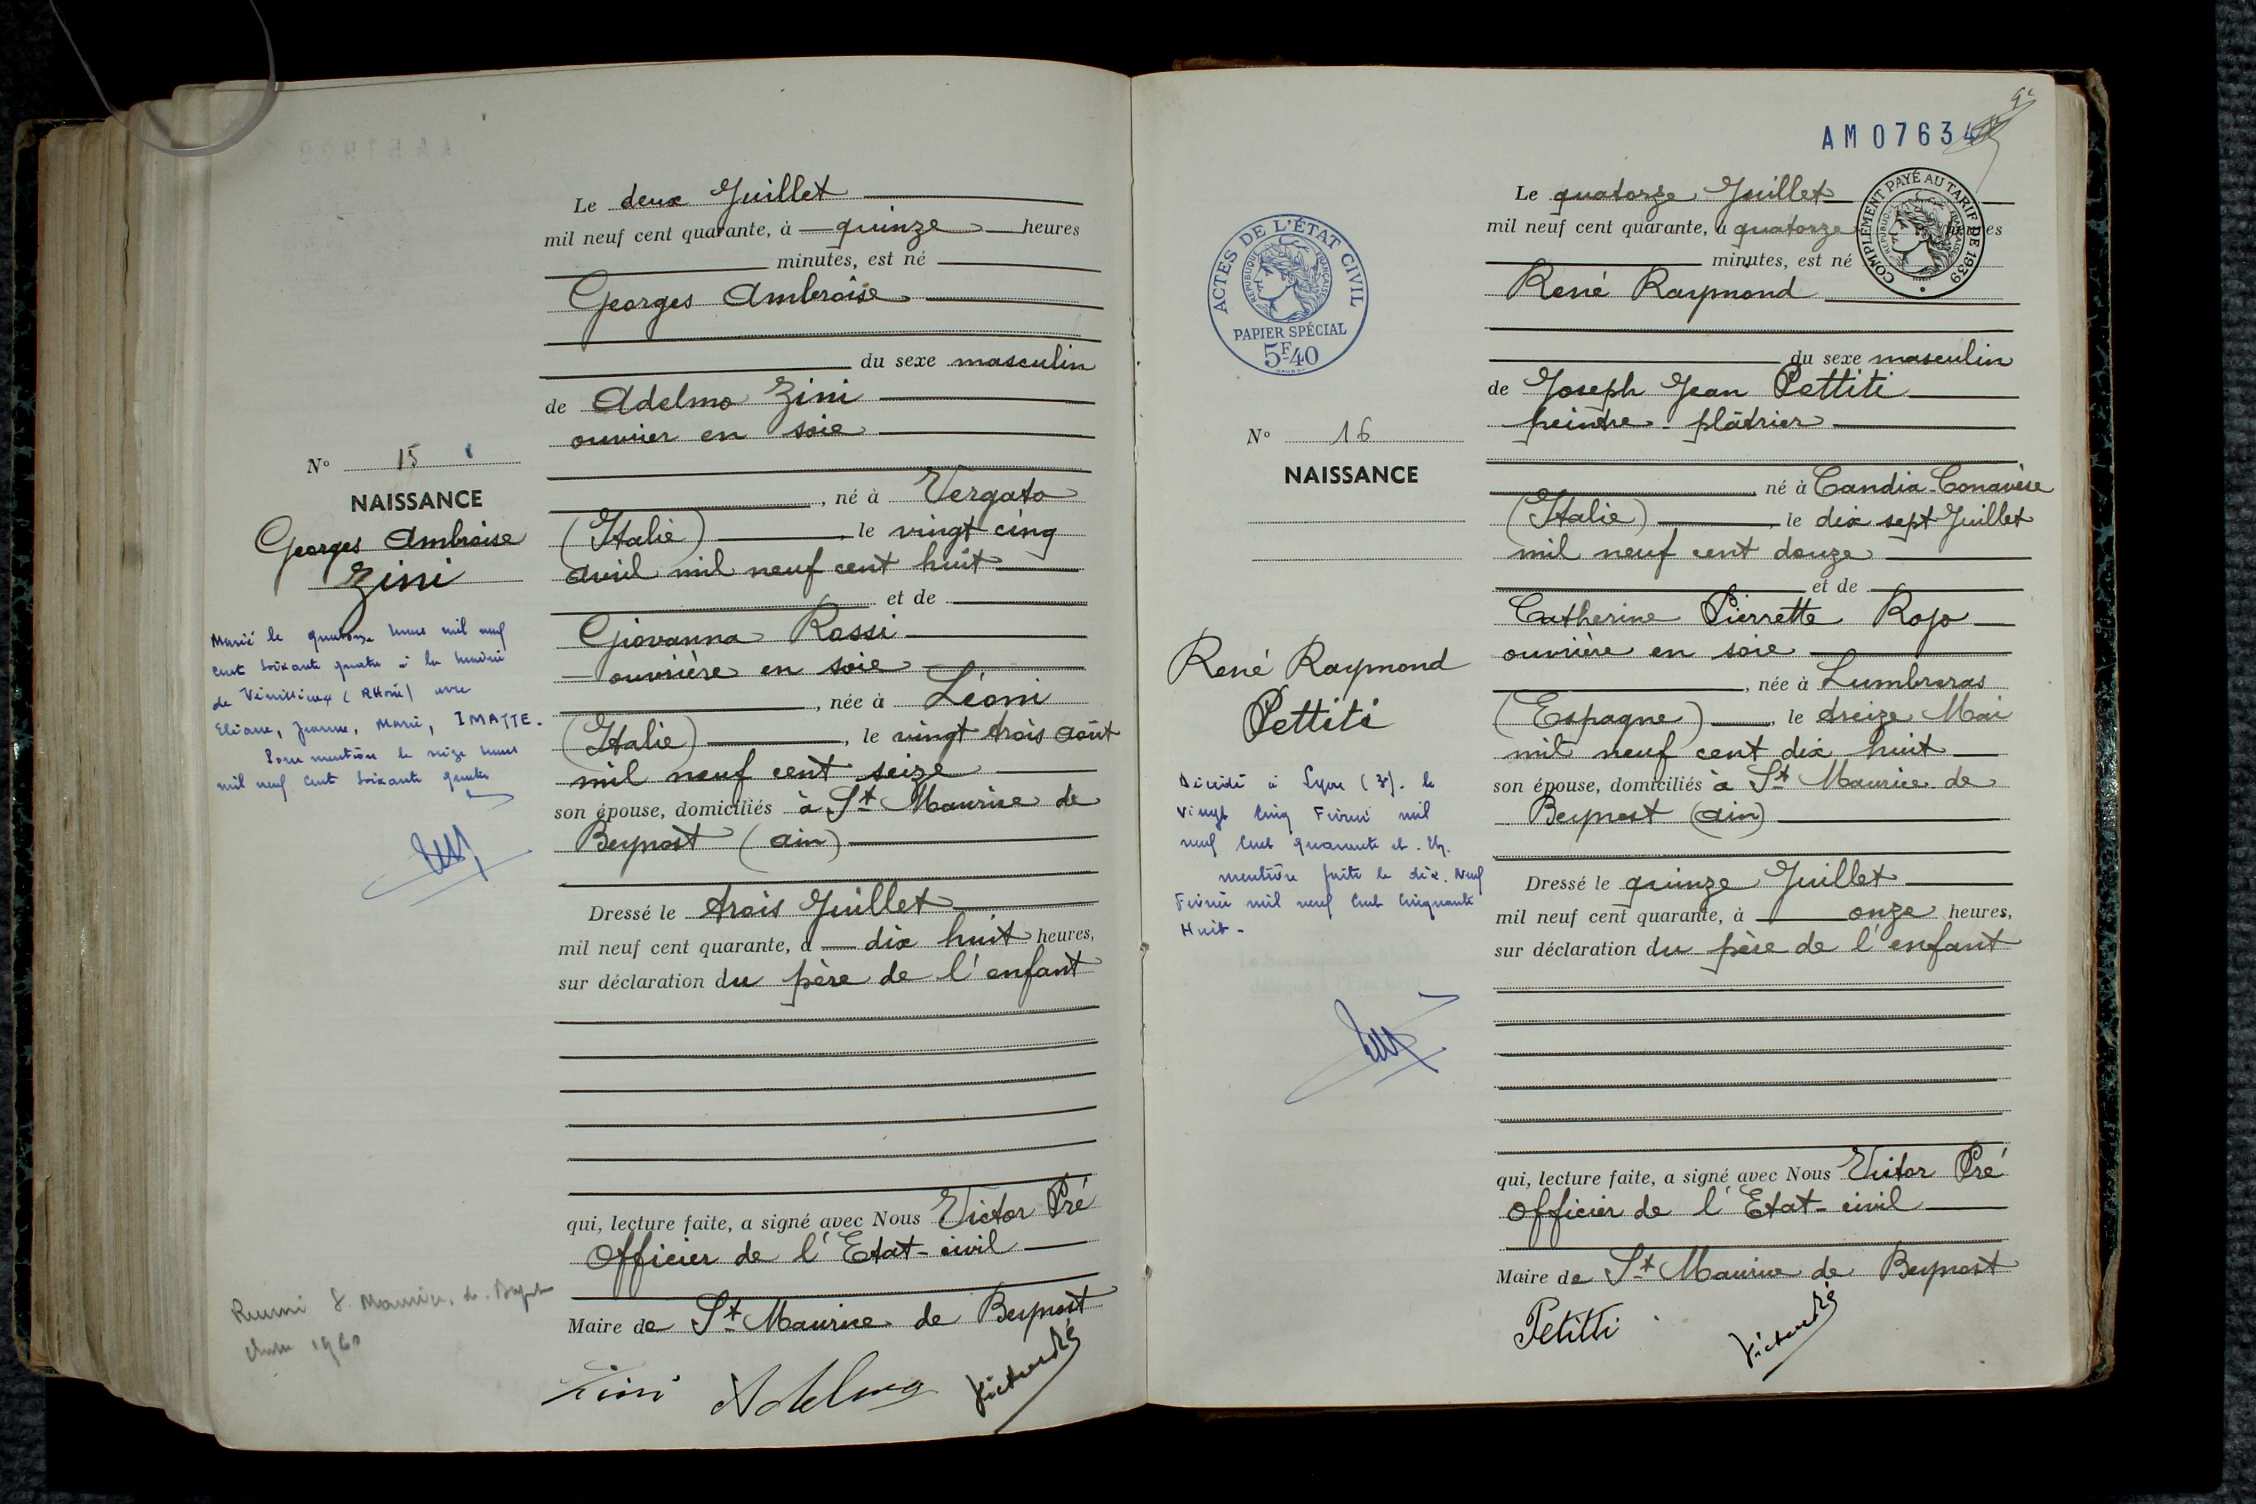 Le deux Juillet
mil neuf cent quarante, à quinze heures
minutes, est né
Georges Ambroise
du sexe masculin
de Adelmo Zini
ouvrier en soie
né à Vergato
(Italie), le vingt cinq
avril mil neuf cent huit
et de
Giovanna Rossi
ouvrière en soie
, née à Léoni
(Italie), le vingt trois août
mil neuf cent seize
son épouse, domiciliés à St Maurice de
Beynost (ain)
Dressé le trois Juillet
mil neuf cent quarante, à dix huit heures,
sur déclaration du père de l'enfant
qui, lecture faite, a signé avec Nous Victor Pré
Officier de l'Etat-civil
Maire de St Maurice de Beynost
Zini Adelmo Victor Pré
N° 15
NAISSANCE
Georges Ambroise
Zini
Marié le quatorze mars mil neuf
cent soixante quatre à la mairie
de Vénissieux (Rhône) avec
Eliane, Jeanne, Marie, IMATTE.
Pour mention le seize mars
mil neuf cent soixante quatre
1960
AM 07634
Le quatorze Juillet
mil neuf cent quarante, à quatorze heures
minutes, est né
René Raymond
du sexe masculin
de Joseph Jean Pettiti
peintre-plâtrier
né à Candia-Conavèse
(Italie), le dix sept Juillet
mil neuf cent douze
et de
Catherine Pierrette Rojo
ouvrière en soie
, née à Lumbreras
(Espagne), le treize Mai
mil neuf cent dix huit
son épouse, domiciliés à St Maurice de
Beynost (ain)
Dressé le quinze Juillet
mil neuf cent quarante, à onze heures,
sur déclaration du père de l'enfant
qui, lecture faite, a signé avec Nous Victor Pré
Officier de l'Etat-civil
Maire de St Maurice de Beynost
Petitti Victor Pré
COMPLÉMENT PAYÉ AU TARIF DE 1939
RÉPUBLIQUE FRANÇAISE
ACTES DE L'ÉTAT CIVIL
RÉPUBLIQUE FRANÇAISE
PAPIER SPÉCIAL
5F40
N° 16
NAISSANCE
René Raymond
Pettiti
Décédé à Lyon (3e). le
vingt cinq Février mil
neuf cent quarante et un.
mention faite le dix. Neuf
Février mil neuf cent cinquante
Huit-